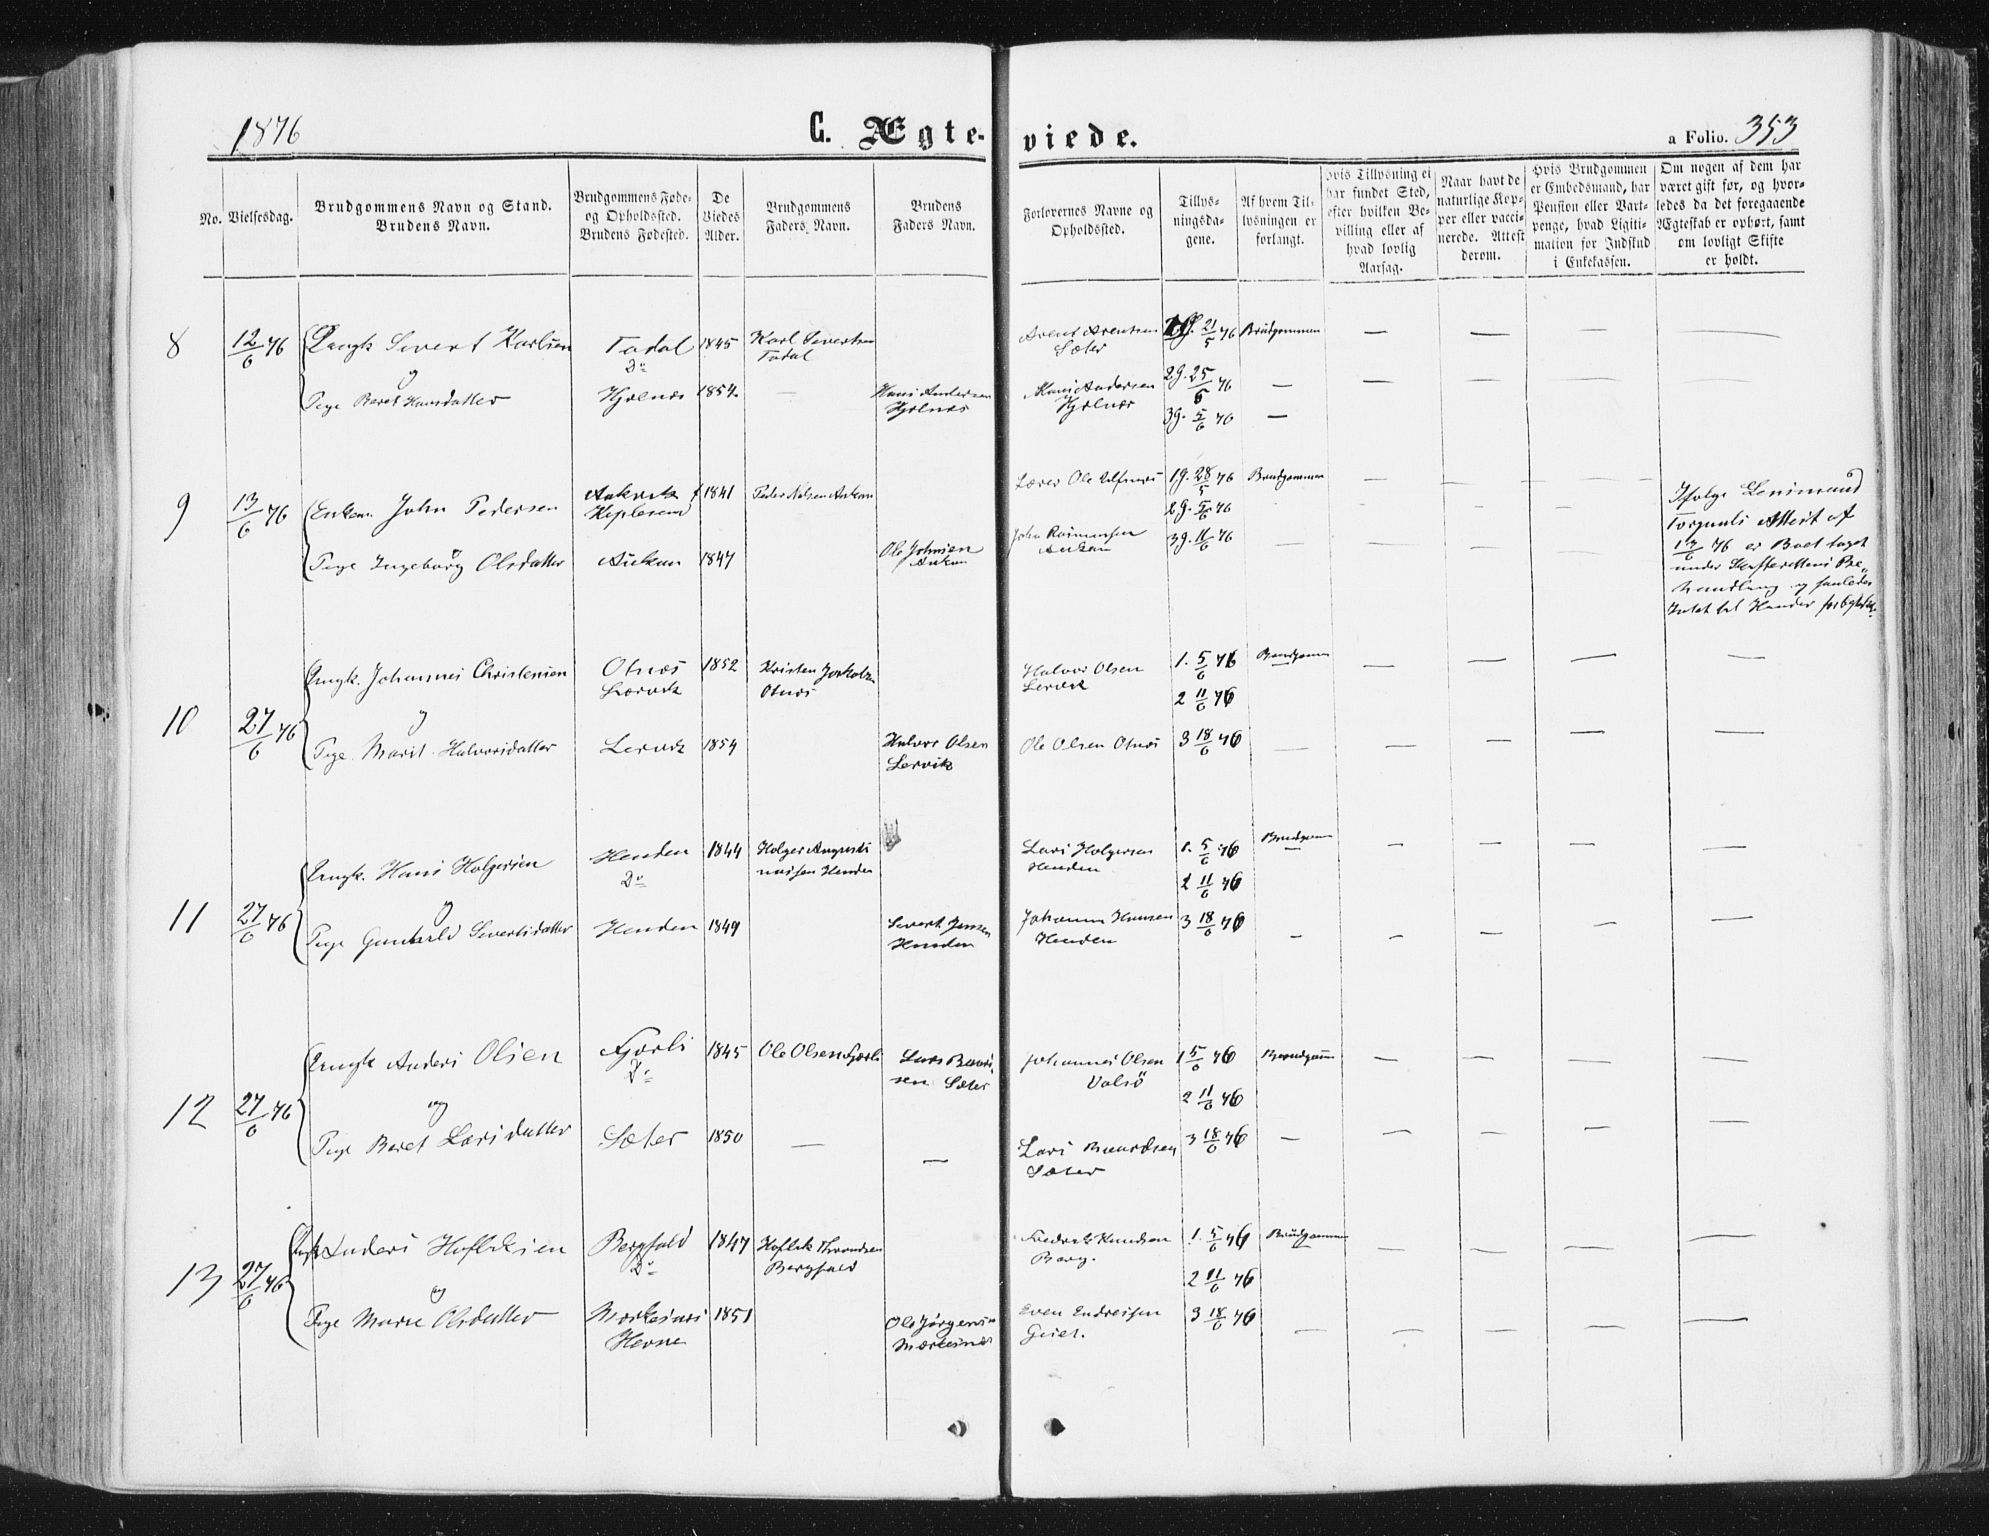 1876
C. Ægte-
viede.
a Folio. 353
No.
Vielsesdag.
Brudgommens Navn og Stand.
Brudens Navn.
Brudgommens Føde-
og Opholdssted.
Brudens Fødested.
De
Viedes
Alder.
Brudgommens
Faders Navn.
Brudens
Faders Navn.
Forlovernes Navne og
Opholdssted.
Tillys-
ningsda-
gene.
Af hvem Til-
lysningen er
forlangt.
Hvis Tillysning ei
har fundet Sted,
efter hvilken Be-
villing eller af
hvad lovlig
Aarsag.
Naar havt de
naturlige Kop-
per eller vacci-
nerede. Attest
derom.
Hvis Brudgommen
er Embedsmand, har
Pension eller Vart-
penge, hvad Ligiti-
mation for Indskud
i Enkekassen.
Om nogen af dem har
været gift før, og hvor-
ledes da det foregaaende
Ægteskab er ophørt, samt
om lovligt Skifte
er holdt.
8 12/6 76 Ungk Sivert Karlsen Todal 1845 Karl Sivertsen Arent Arentsen 1g. 21/5 76 Brudgommen — — —
Do Todal Sæter
og
Pige Beret Hansdatter Hjelnæs 1854 — Hans Andersen Hans Andersen 2g. 25/5 76 — — — —
Hjelnæs Hjelnæs 3g. 5/6 76 —
9 13/6 76 Enkem. John Pedersen 1841 Peder Nilsen Lærer Ole 1g. 28/5 76 Brudgommen — — — Ifølge Lensmand
2g. 5/6 76 Attest af
og
Pige Ingeborg Olsdatter Aukan 1847 Ole Johnsen John 3g. 11/6 76 — — — — 13/6 76 er Boet taget
Aukan Aukan under Skifterettens Be-
handling og saaledes
Intet til Hinder
10 27/6 76 Ungk. Johannes Christensen Otnæs 1852 Kristen Halvor Olsen 1. 5/6 76 Brudgom — — — —
Lervik Otnæs Lervik 2 11/6 76
og
Pige Marit Halvorsdatter Lervik 1854 Halvor Olsen Ole Olsen Otnæs 3 18/6 76 — — — — —
Lervik
11 27/6 76 Ungk. Hans Holgersen Henden 1844 Holger Augusti- Lars Holgersen 1. 5/6 76 Brudgom — — — —
Do nussen Henden Henden 2 11/6 76
og
Pige Gunhild Sivertsdatter Henden 1849 Sivert Jensen Johannes Hansen 3 18/6 76 — — — — —
Henden Henden
12 27/6 76 Ungk Anders Olsen Fjorli 1845 Ole Olsen Fjorli Lars Baard- Johannes Olsen 1 5/6 76 Brudgom — — — —
Do sen Sæter Valsø 2 11/6 76
og
Pige Beret Larsdatter Sæter 1850 — — Lars Baardsen 3 18/6 76 — — — — —
Sæter
13 27/6 76 Ungk Anders Bergfald 1847 Fredrik Knudsen 1. 5/6 76 Brudgommen — — — —
Do Bergfald Berg. 2 11/6 76
og
Pige Marie Olsdatter 1851 Ole Jørgens Even Endresen 3 18/6 76 — — — — —
Hevne